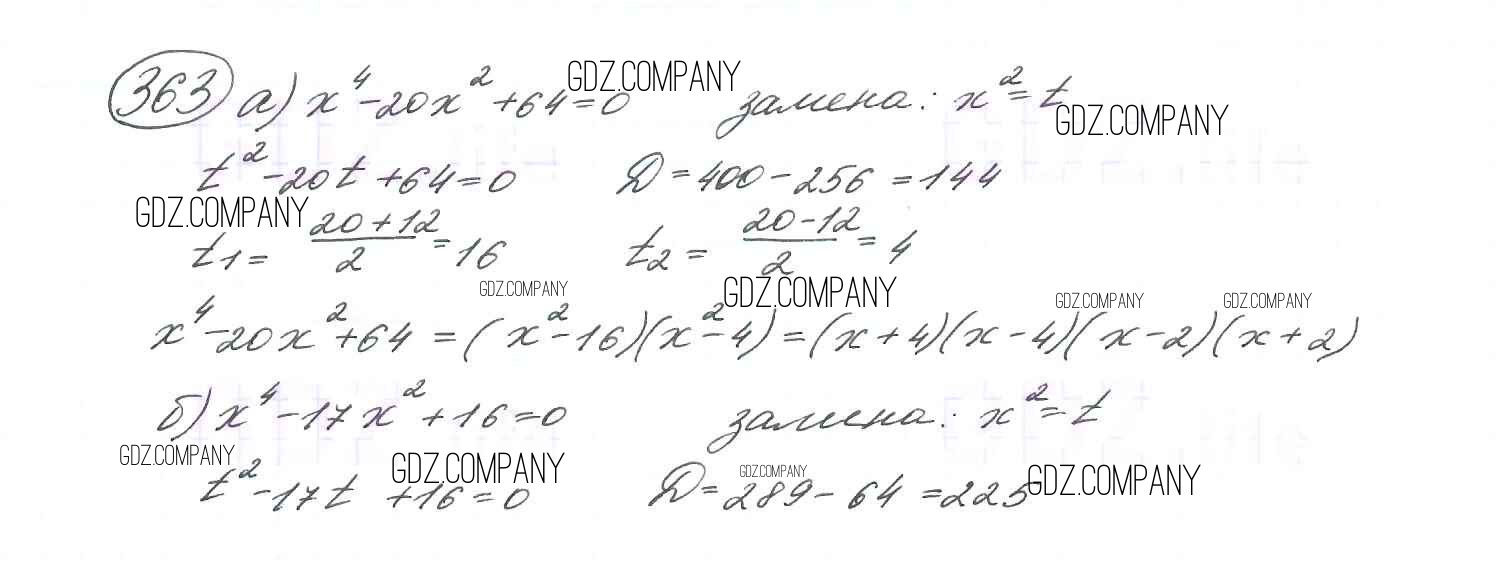 363 а) x⁴-20x²+64=0 замена: x²=t
GDZ.COMPANY GDZ.COMPANY
t²-20t+64=0 D=400-256=144
GDZ.COMPANY
t₁= (20+12)/2 =16 t₂= (20-12)/2 =4
GDZ.COMPANY GDZ.COMPANY GDZ.COMPANY GDZ.COMPANY
x⁴-20x²+64=(x²-16)(x²-4)=(x+4)(x-4)(x-2)(x+2)
б) x⁴-17x²+16=0 замена: x²=t
GDZ.COMPANY GDZ.COMPANY GDZ.COMPANY GDZ.COMPANY
t²-17t+16=0 D=289-64=225